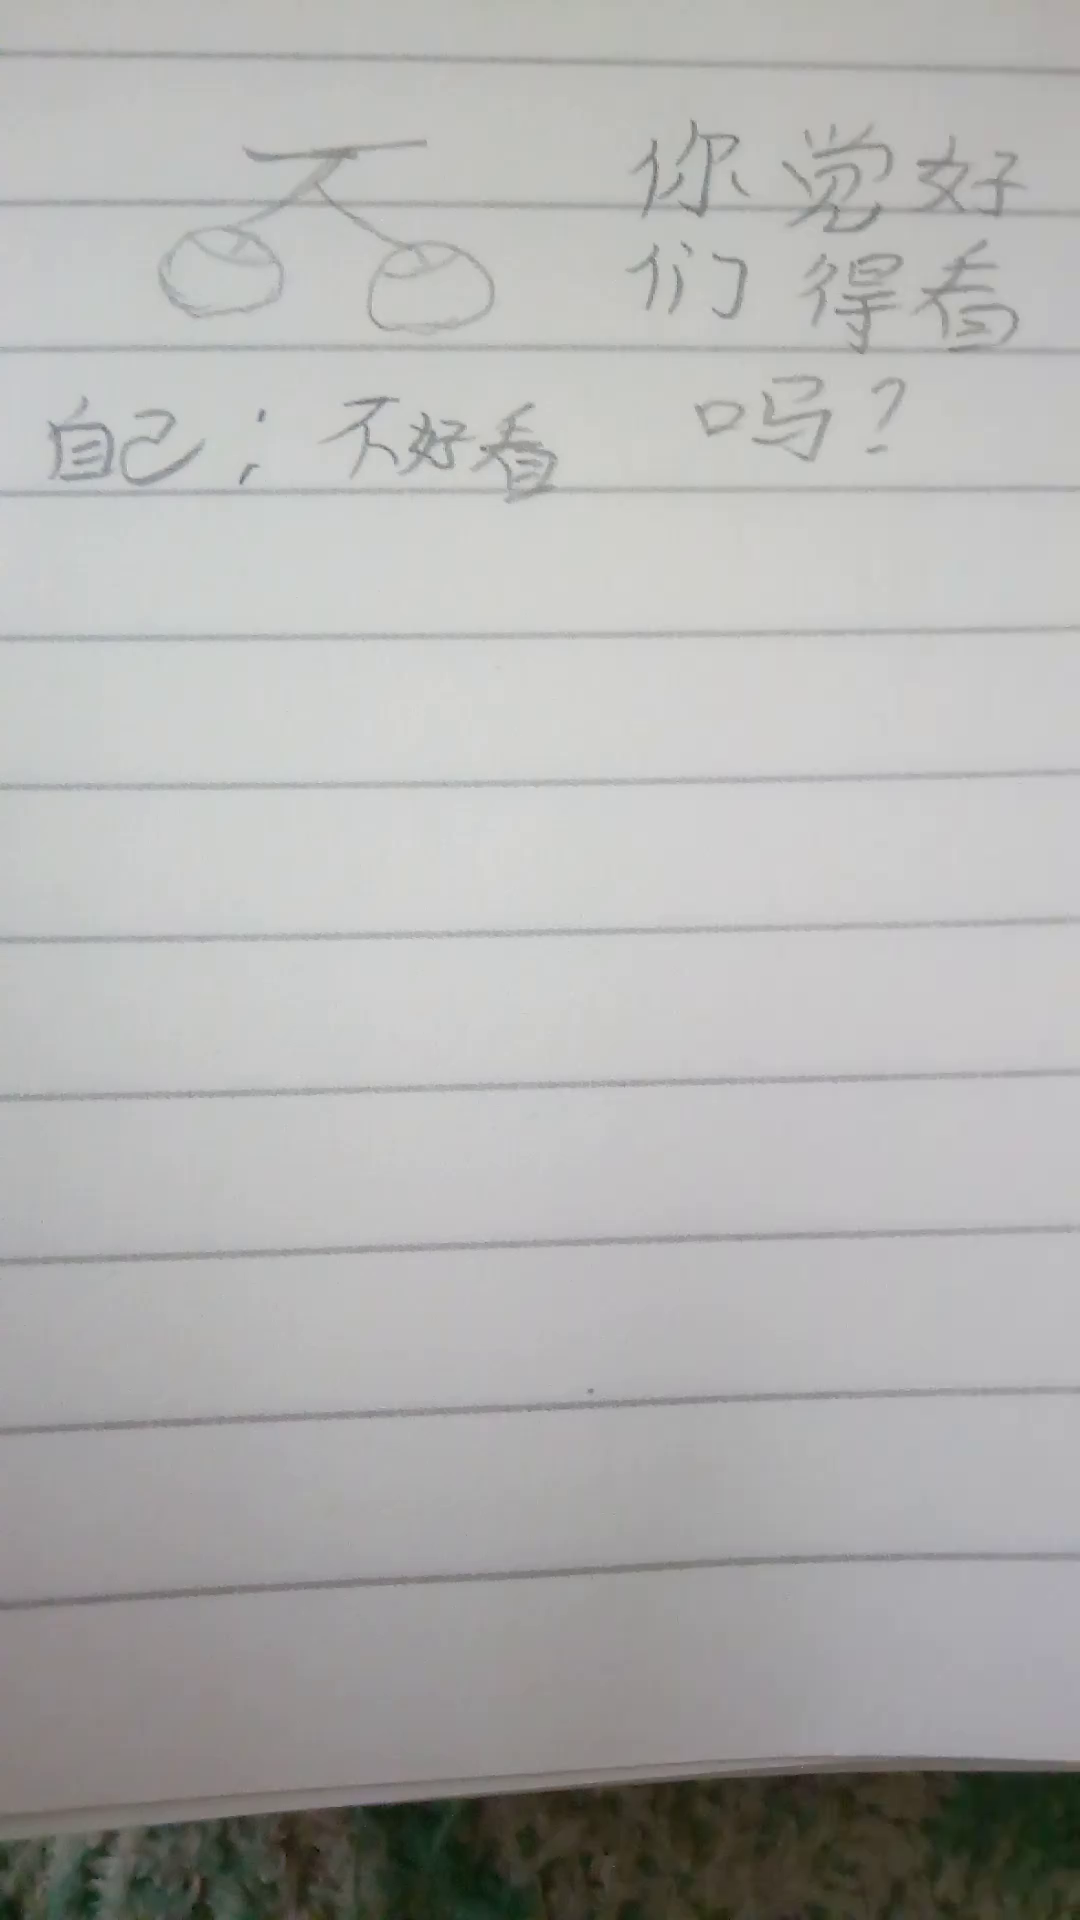 你觉好
们得看
吗？
自己：不好看